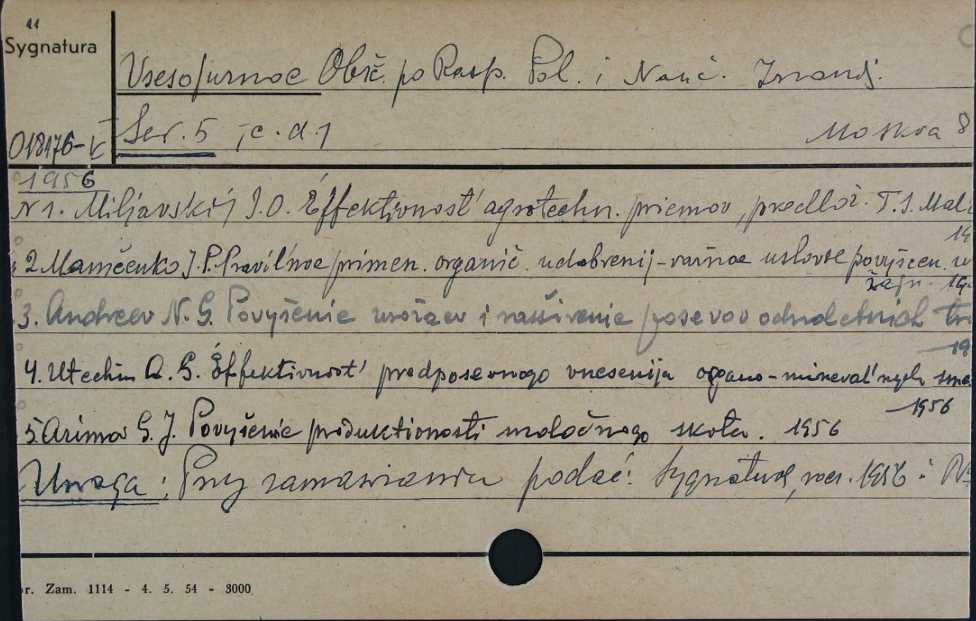 Sygnatura
Vsesojuznoe Obšč. po Rasp. Pol. i Nauč. Znanij.
018176-V Ser. 5, c. d. 1 Moskva 8
1956
N 1. Miljavskij I. O. Éffektivnost' agrotechn. priemov, predlož. T. S. Mal
2. Mamčenko I. P. Pravil'noe primen. organič. udobrenij - važnoe uslovie povyšen. u
3. Andreev N. G. Povyšenie urožaev i rasširenie posevov odnoletnich tr
4. Utechin A. G. Éffektivnost' predposevnogo vnesenija organo-mineral'nych sme
1956
5. Arimov G. I. Povyšenie produktivnosti moločnogo skota. 1956
Uwaga: Przy zamawianiu podać: Sygnaturę, rocz. 1956 i N
r. Zam. 1114 - 4. 5. 54 - 3000